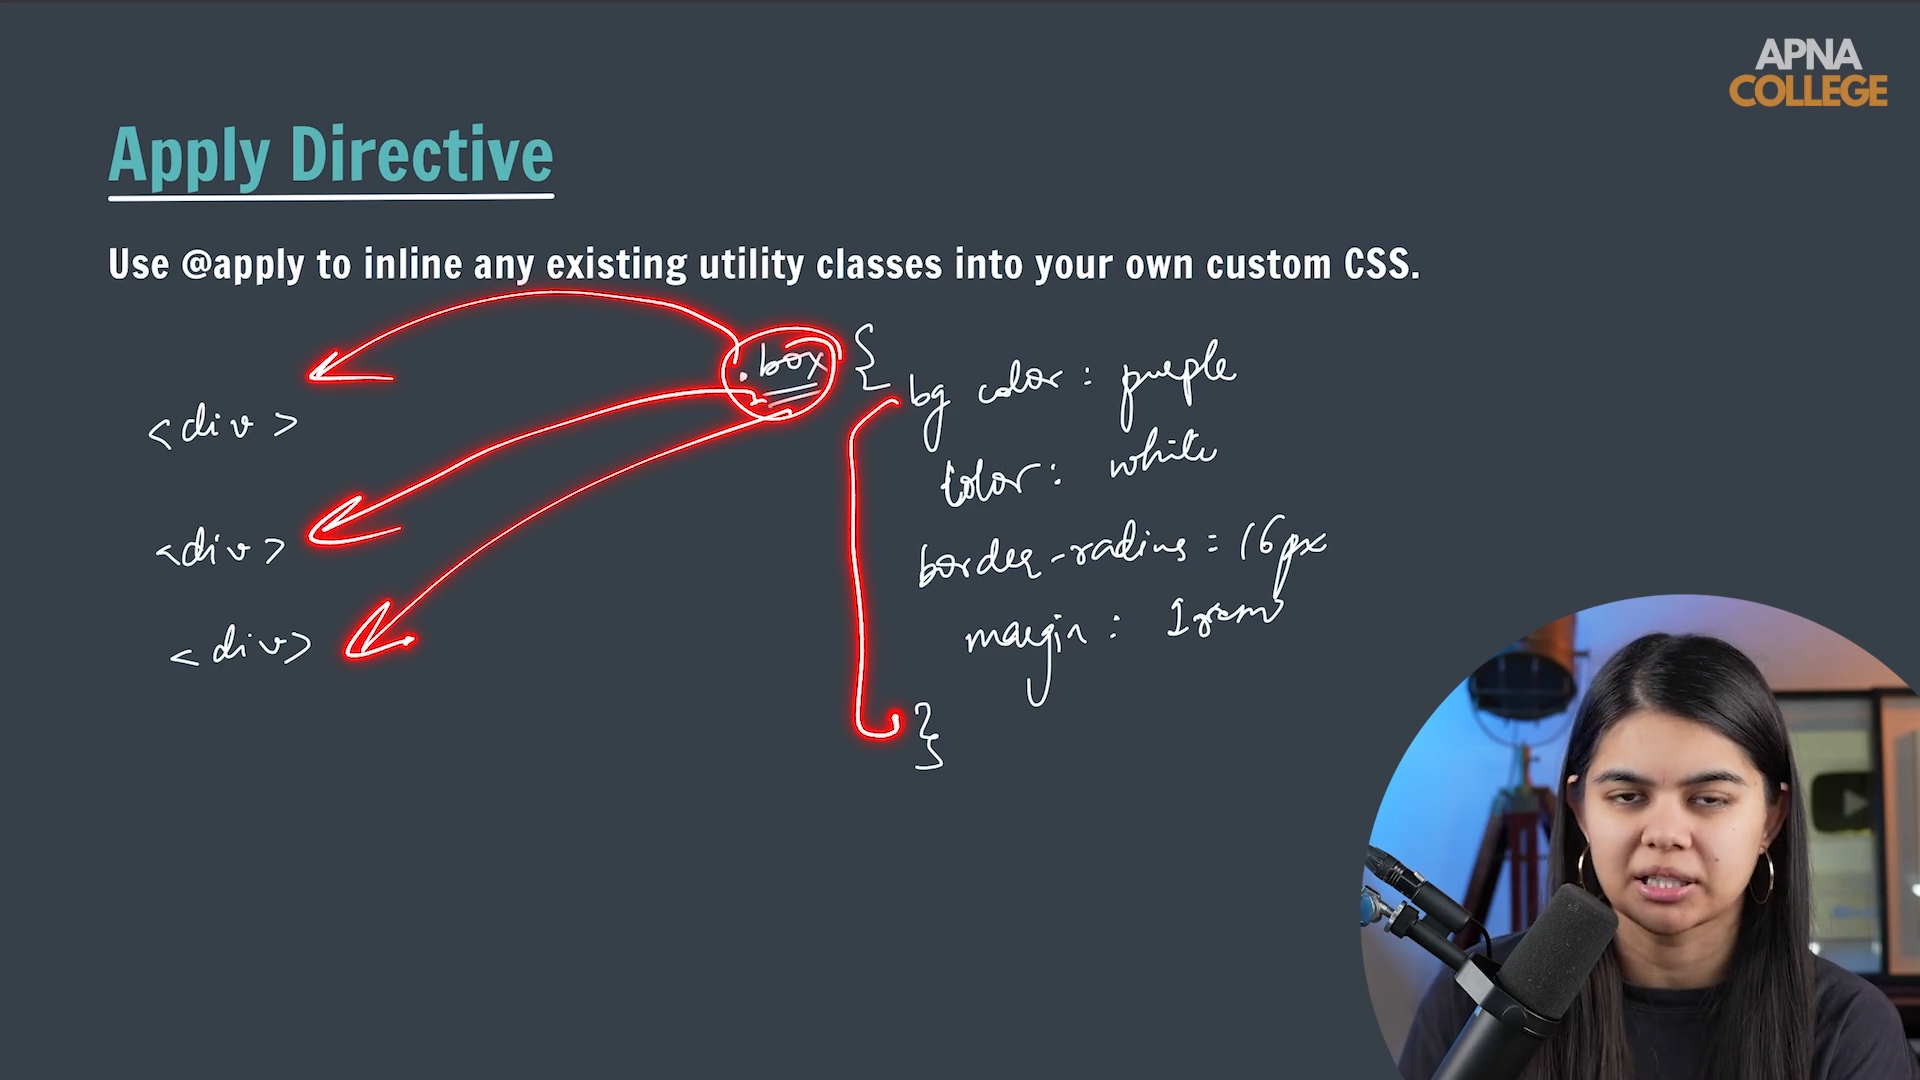 APNA
COLLEGE
Apply Directive
Use @apply to inline any existing utility classes into your own custom CSS.
.box {
bg color : purple
<div>
color : white
<div>
border-radius = 16px
margin : 1rem
<div>
}